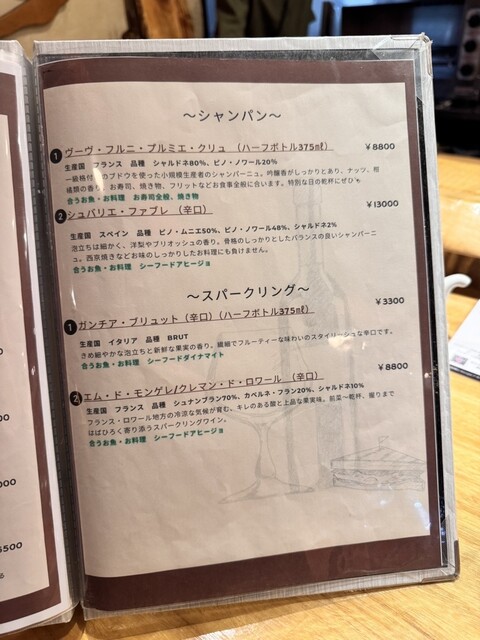 〜シャンパン〜
1 ヴーヴ・フルニ・プルミエ・クリュ （ハーフボトル375㎖） ￥8800
生産国 フランス 品種 シャルドネ80%、ピノ・ノワール20%
一級格付 のブドウを使った小規模生産者のシャンパーニュ。吟醸香がしっかりとあり、ナッツ、柑
橘類の香り お寿司、焼き物、フリットなどお食事全般に合います。特別な日の乾杯にぜひ
合うお魚・お料理 お寿司全般、焼き物
2 シュバリエ・ファブレ （辛口） ￥13000
生産国 スペイン 品種 ピノ・ムニエ50%、ピノ・ノワール48%、シャルドネ2%
泡立ちは細かく、洋梨やブリオッシュの香り。骨格のしっかりとしたバランスの良いシャンパーニ
ュ。西京焼きなどお味のしっかりしたお料理にも負けません。
合うお魚・お料理 シーフードアヒージョ
〜スパークリング〜
1 ガンチア・ブリュット（辛口）（ハーフボトル375㎖） ￥3300
生産国 イタリア 品種 BRUT
きめ細やかな泡立ちと新鮮な果実の香り。繊細でフルーティーな味わいのスタイリーシュな辛口です。
合うお魚・お料理 シーフードダイナマイト
2 エム・ド・モンゲレ/クレマン・ド・ロワール （辛口） ￥8800
生産国 フランス 品種 シュナンブラン70%、カベルネ・フラン20%、シャルドネ10%
フランス・ロワール地方の冷涼な気候が育む、キレのある酸と上品な果実味。前菜〜乾杯、握りまで
はばひろく寄り添うスパークリングワイン。
合うお魚・お料理 シーフードアヒージョ